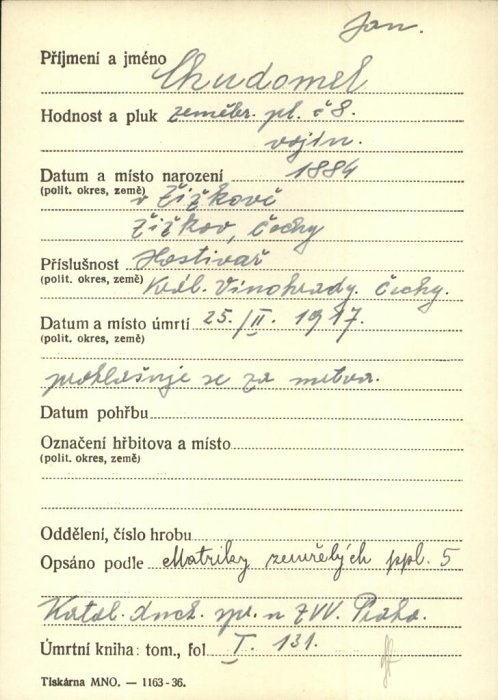 Jan.
Příjmení a jméno Chudomel
Hodnost a pluk zeměbr. pl. č 8.
vojín.
Datum a místo narození 1884
(polit. okres, země) v Žižkově
Žižkov, Čechy
Příslušnost Hostivař
(polit. okres, země) Král. Vinohrady. Čechy.
Datum a místo úmrtí 25./II. 1917.
(polit. okres, země)
prohlašuje se za mrtva.
Datum pohřbu
Označení hřbitova a místo
(polit. okres, země)
Oddělení, číslo hrobu
Opsáno podle Matriky zemřelých ppl. 5
Katol. duch. spr. u ZVV. Praha.
Úmrtní kniha: tom., fol I. 131.
Tiskárna MNO. — 1163-36.